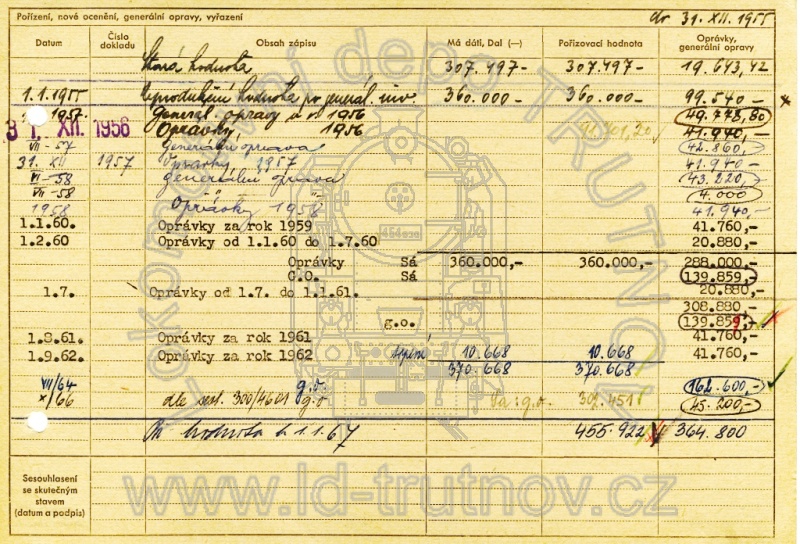 Pořízení, nové ocenění, generální opravy, vyřazení
dr 31. XII. 1955
Datum Číslo dokladu Obsah zápisu Má dáti, Dal (—) Pořizovací hodnota Oprávky, generální opravy
Stará hodnota 307.497- 307.497- 19.643,42
1.1.1955 Reprodukční hodnota po generál. inv. 360.000,- 360.000,- 99.540,-
1957 General. opravy v r. 1956 49.778,80
31. XII. 1956 Oprávky, 1956 41.940,-
VII-57 Generální oprava 42.860,-
31. XII 1957 Oprávky, 1957 41.940,-
VI-58 generální oprava 43.220,-
VII-58 4.000
1958 Oprávky 1958 41.940,-
1.1.60. Oprávky za rok 1959 41.760,-
1.2.60 Oprávky od 1.1.60 do 1.7.60 20.880,-
Oprávky Sá 360.000,- 360.000,- 288.000,-
G.O. Sá 139.859,-
1.7. Oprávky od 1.7. do 1.1.61. 20.880,-
308.880,-
g.o. 139.859,-
1.8.61. Oprávky za rok 1961 41.760,-
1.9.62. Oprávky za rok 1962 10.668 10.668 41.760,-
370.668 370.668
VII/64 g.o. 162.600,-
X/66 dle sest. 300/4601 g.o 45.200,-
hodnota k 1.1.67 455.922 364.800
Sesouhlaseni se skutečným stavem (datum a podpis)
454.020
Lokomotivní depo TRUTNOV
www.ld-trutnov.cz